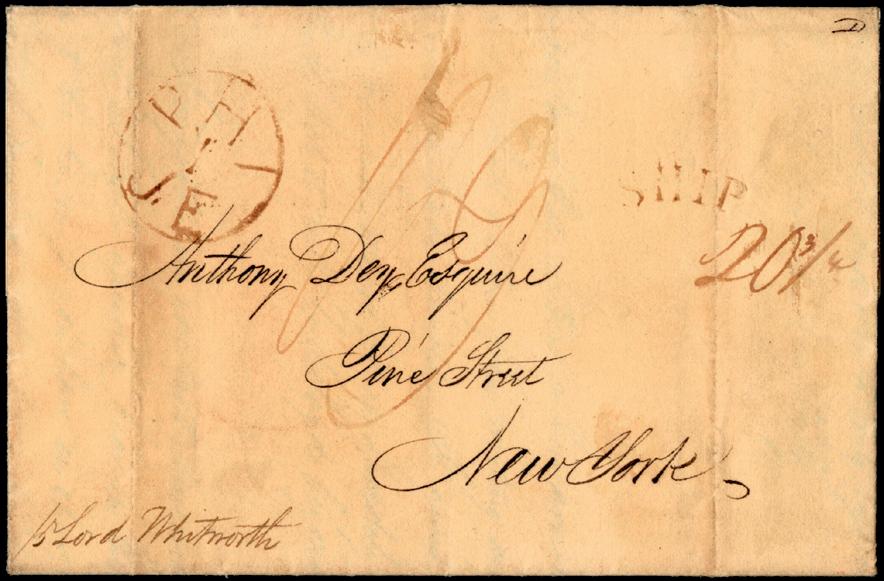 PHI
JE
SHIP
20 3/4
Anthony Dey, Esquire
Pine Street
New York
Lord Whitworth